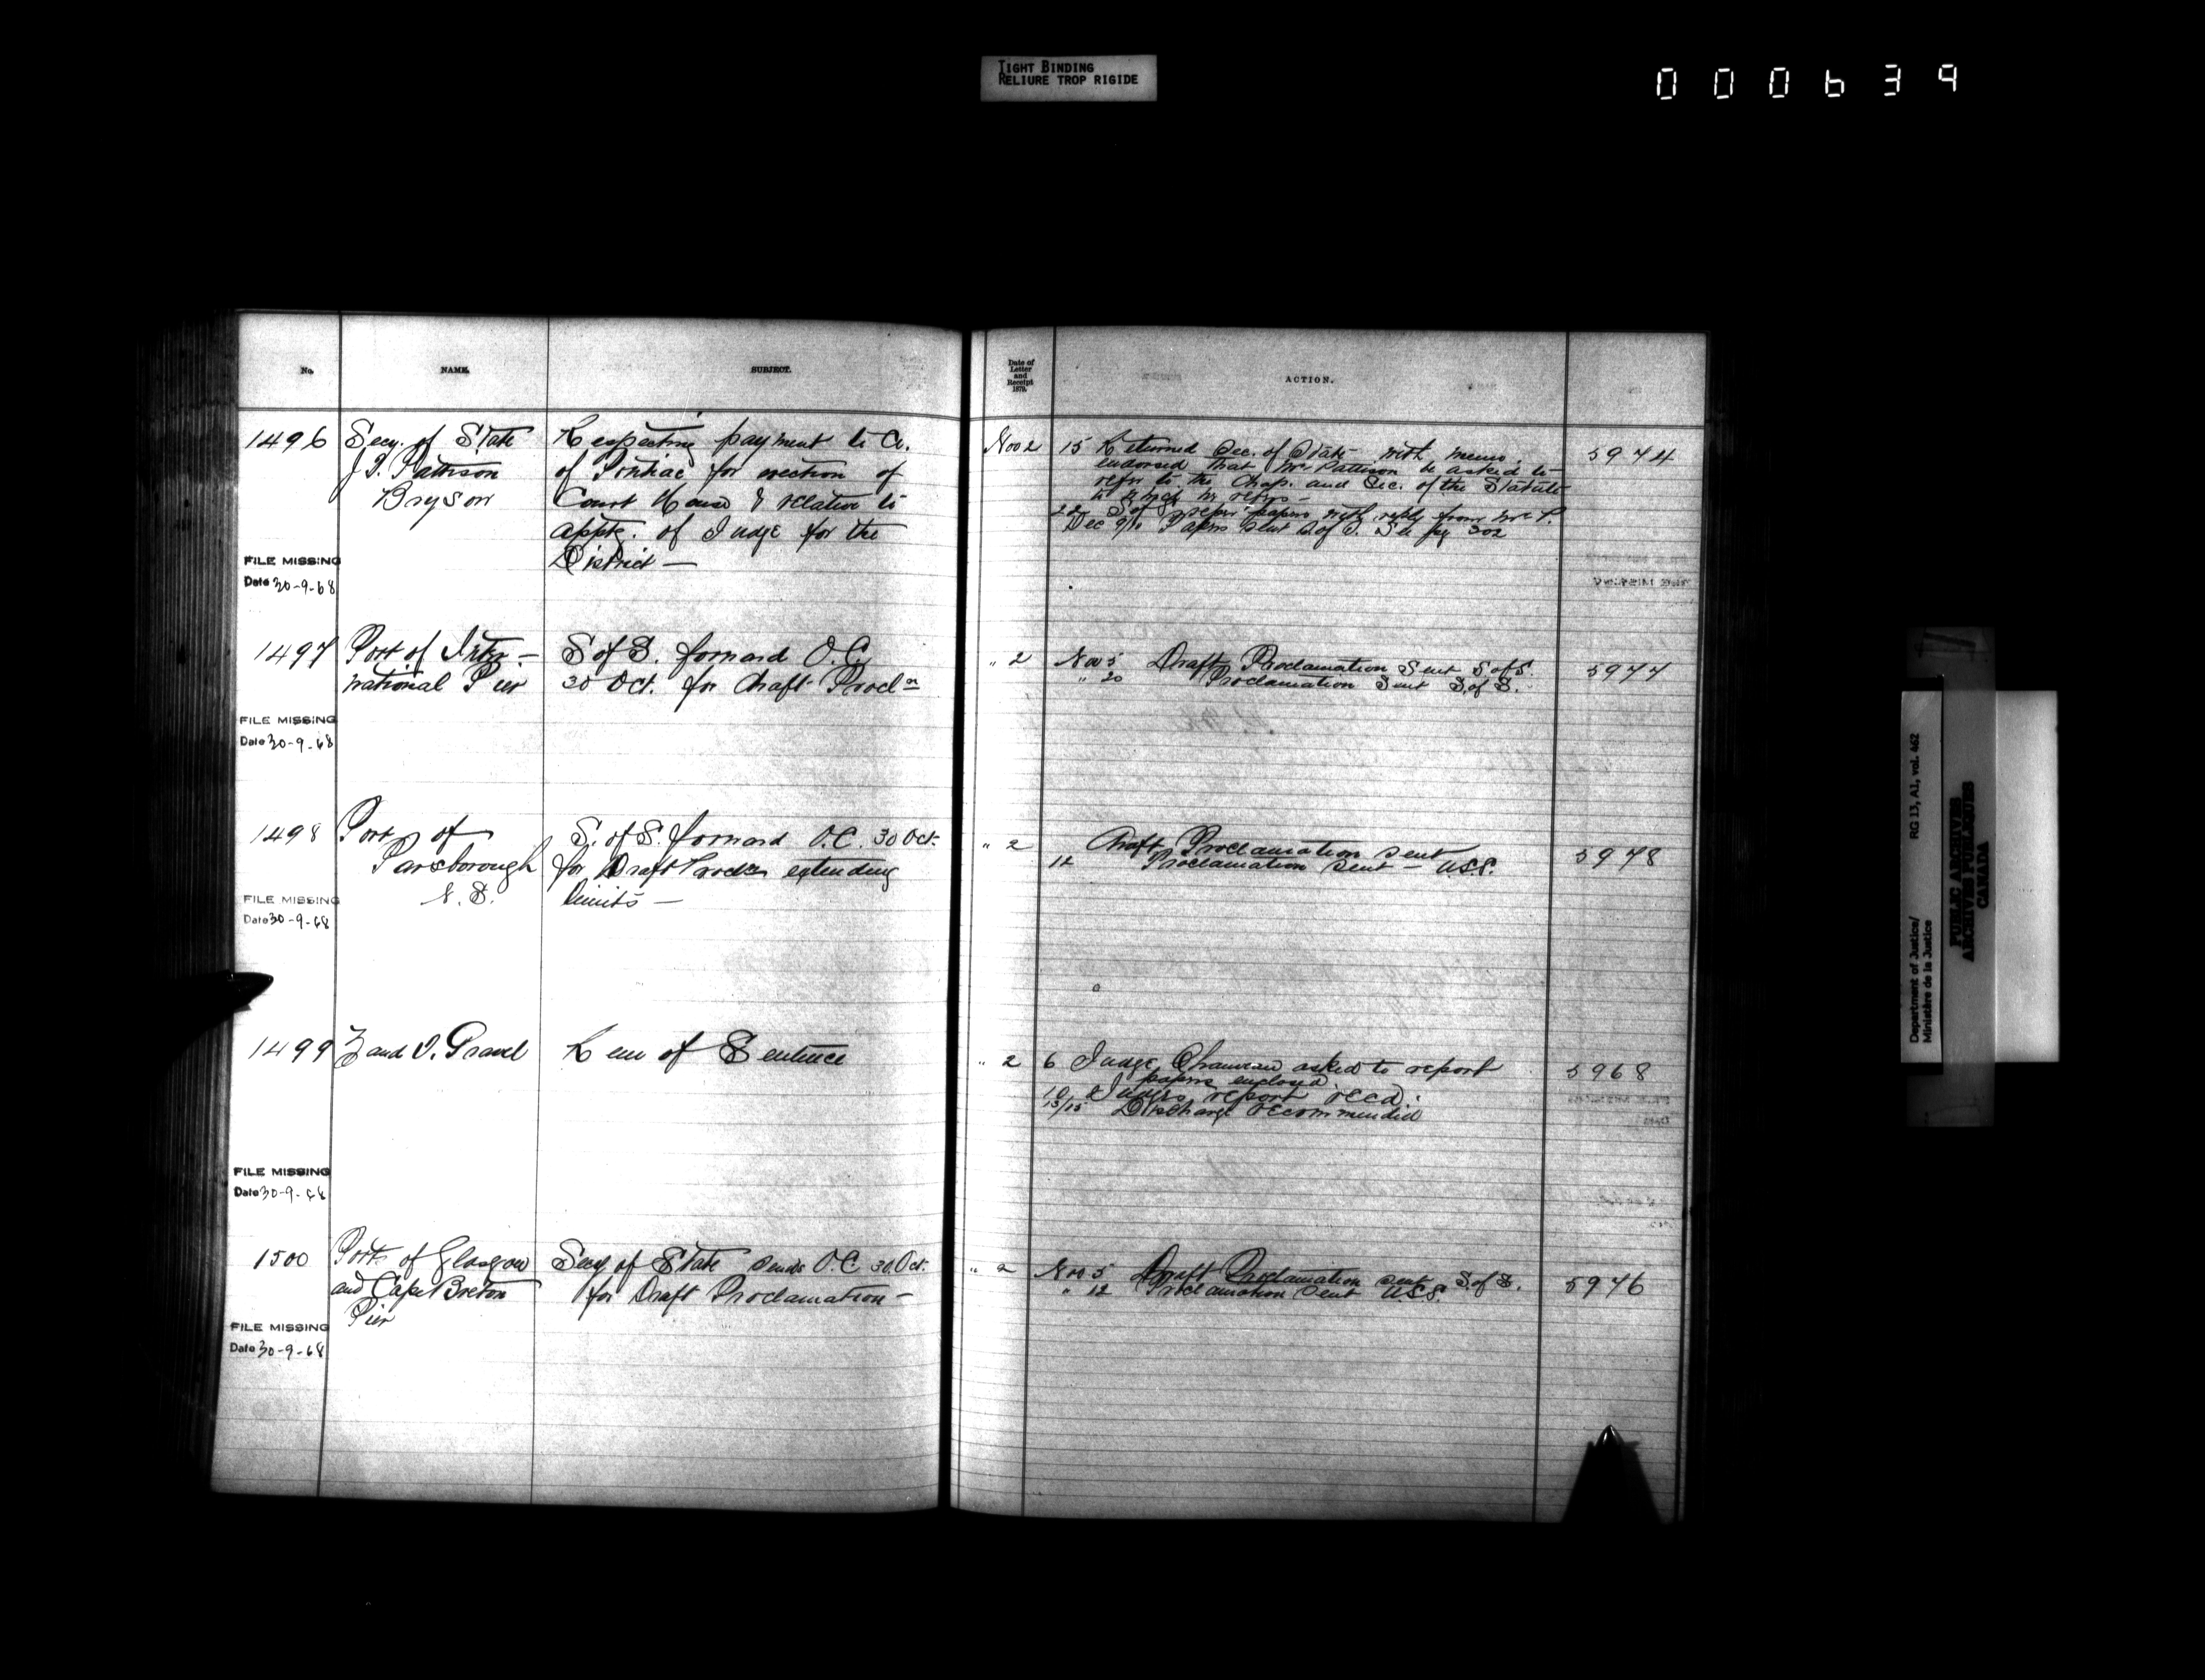 TIGHT BINDING
RELIURE TROP RIGIDE
000639
No.
NAME.
SUBJECT.
Date of
Letter
and
Receipt
1879.
ACTION.
1496
Secy. of State
J. S. Pattison
Bryson
Respecting payment to Co.
of Pontiac for erection of
Court House & relative to
apptg. of Judge for the
District —
Nov 2
15 Returned Sec. of State with memo.
endorsed that Mr Pattison be asked to
refer to the Chap. and Sec. of the Statute
to which he refers —
22 S of S papers with reply from Mr P.
Dec 9/10 Papers sent S of S. See pg 302
5974
FILE MISSING
Date 30-9-68
1497
Port of Inter-
national Pier
S of S. forward O.C.
30 Oct. for draft Procln
" 2
Nov 5 Draft Proclamation Sent S of S.
" 20 Proclamation Sent S. of S.
5977
FILE MISSING
Date 30-9-68
1498
Port of
Parsborough
N. S.
S. of S. forward O.C. 30 Oct.
for Draft Procln extending
limits —
" 2
Draft Proclamation sent
12 Proclamation sent — U.S.S.
5978
FILE MISSING
Date 30-9-68
1499
Z and J. Gravel
Rem of Sentence
" 2
6 Judge Chauveau asked to report
papers enclosed.
10 Judges report recd.
13/15 Discharge recommended
5968
FILE MISSING
Date 30-9-68
1500
Port of Glasgow
and Cape Breton
Pier
Secy of State sends O.C 30 Oct.
for Draft Proclamation —
" 2
Nov 5 Draft Proclamation sent S. of S.
" 12 Proclamation sent U.S.S.
5976
FILE MISSING
Date 30-9-68
Department of Justice/ RG 13, A1, vol. 462
Ministère de la Justice
PUBLIC ARCHIVES
ARCHIVES PUBLIQUES
CANADA